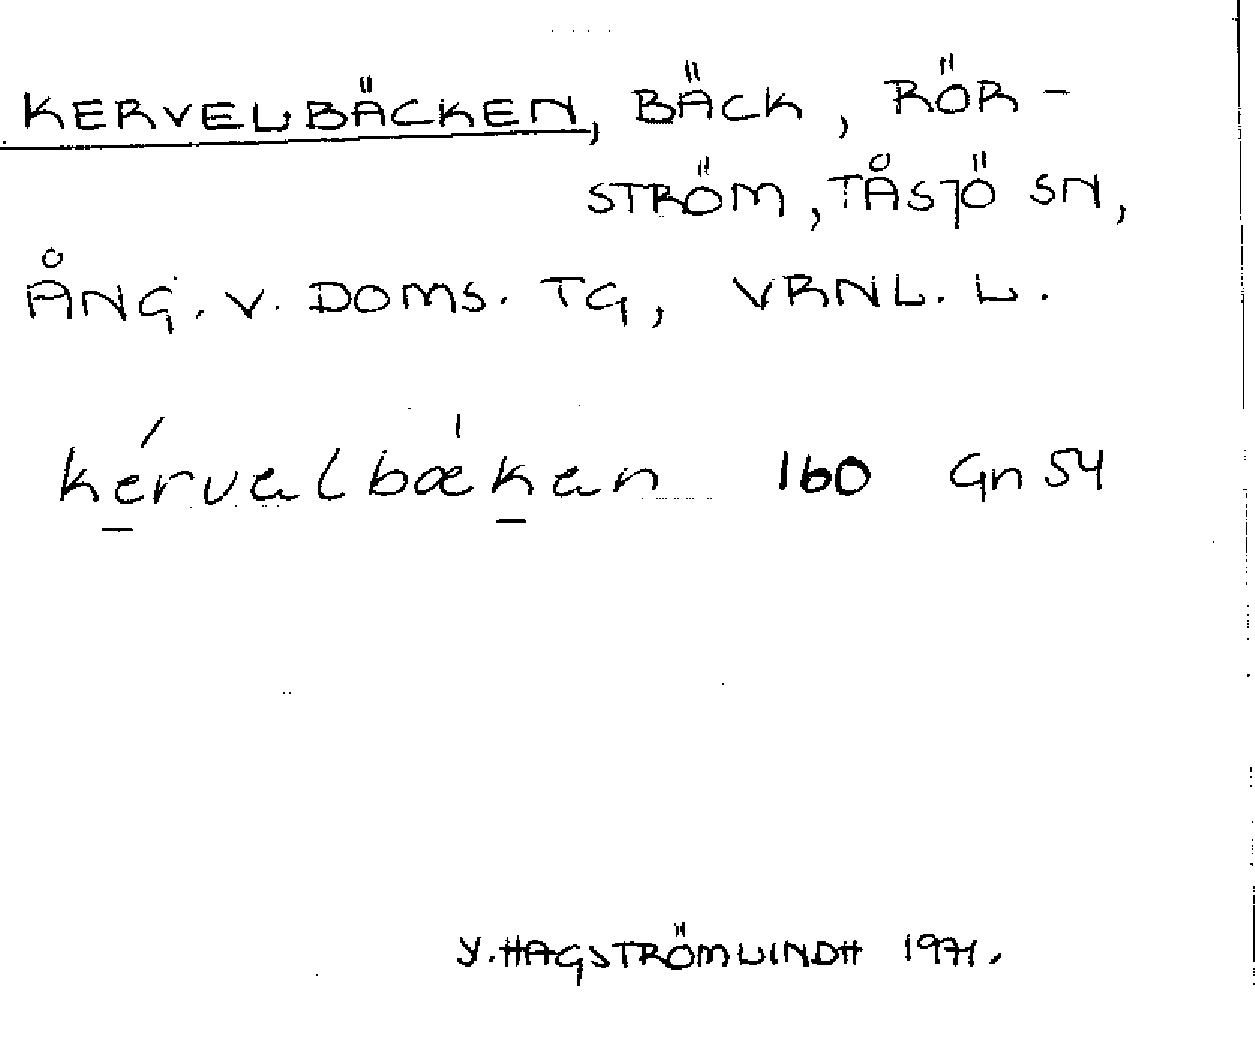 KERVELBÄCKEN, BÄCK, RÖR-
STRÖM, TÅSJÖ SN,
ÅNG. V. DOMS. TG, VRNL. L.
kérvelbæken 160 Gn 54
Y. HAGSTRÖMLINDH 1971.